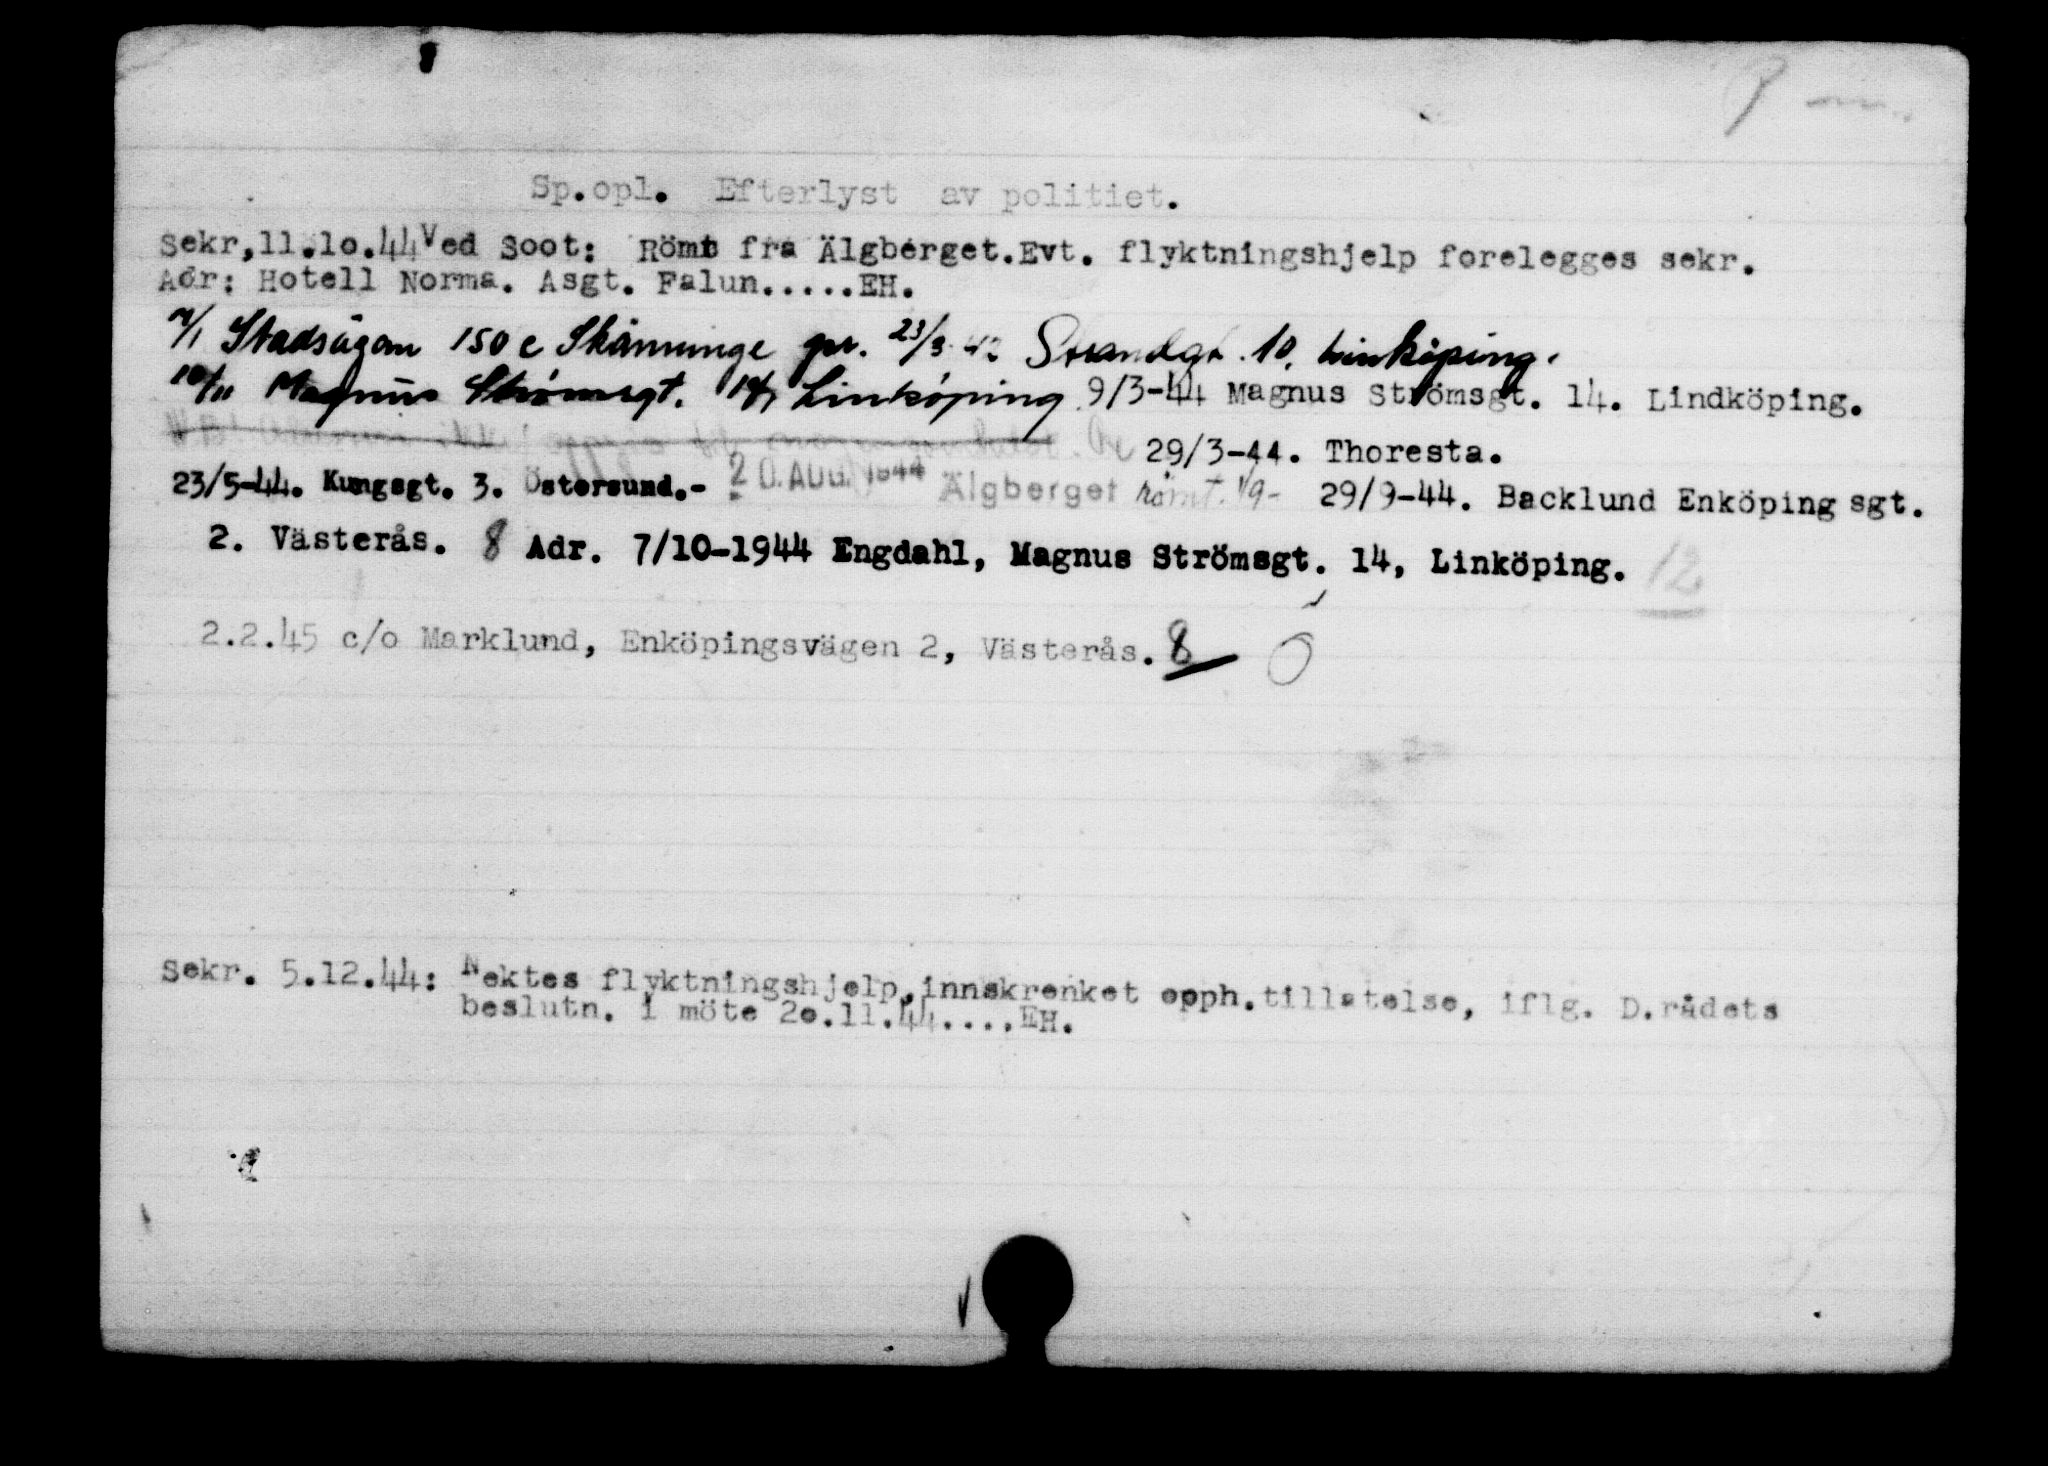 Sp.opl. Efterlyst av politiet.
Sekr,11.1o.44 Ved Soot: Römt fra Älgberget.Evt. flyktningshjelp forelegges sekr.
Adr: Hotell Norma. Asgt. Falun.....EH.
Stadsågan 150 c Skänninge pr. 23/3 42 Strandgt. 10. Linköping.
10/11 Magnus Strömsgt. 14 Linköping 9/3-44 Magnus Strömsgt. 14. Lindköping.
29/3-44. Thoresta.
23/5-44. Kungsgt. 3. Östersund.- 20. AUG. 1944 Älgberget römt. 1/9- 29/9-44. Backlund Enköping sgt.
2. Västerås. 8 Adr. 7/10-1944 Engdahl, Magnus Strömsgt. 14, Linköping. 12
2.2.45 c/o Marklund, Enköpingsvägen 2, Västerås. 8
Sekr. 5.12.44: Nektes flyktningshjelp, innskrenket opph.tillatelse, iflg. D.rådets
beslutn. i möte 2o.11.44....EH.